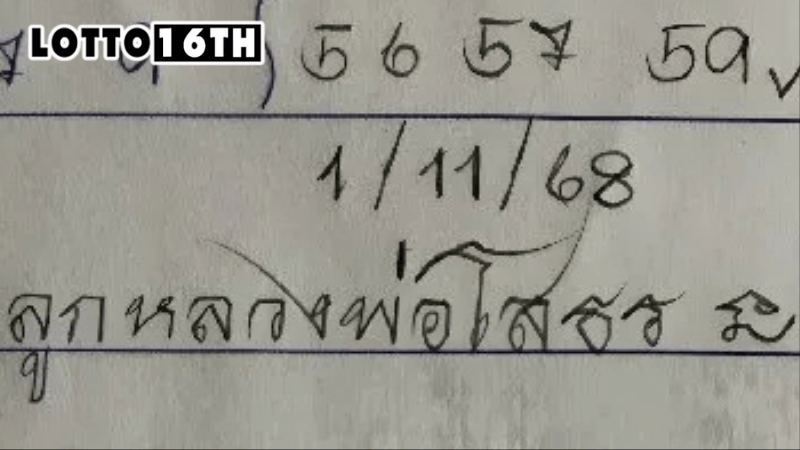 LOTTO 16TH
56 57 59
1/11/68
ลูกหลวงพ่อโสธร